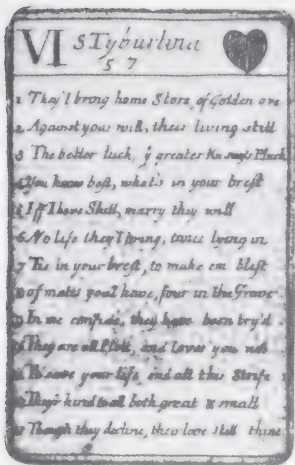 VI STyburtina
57
1 They'l bring home Store, of Golden ore
2 Against your will, their living still
3 The better luck, ÿ greater Knaves
4 You know best, what's in your brest
5 If I have Skill, marry they will
6 No life they'l bring, twice lying in
7 Tis in your brest, to make em blest
8 of mates you'l have, four in the Grave
9 In me confide, they have been try'd
10 They are all, and loves you not
11 To save your life, end all this Strife
12 They'r kind to all both great & small
13 Though they decline, their love still thine